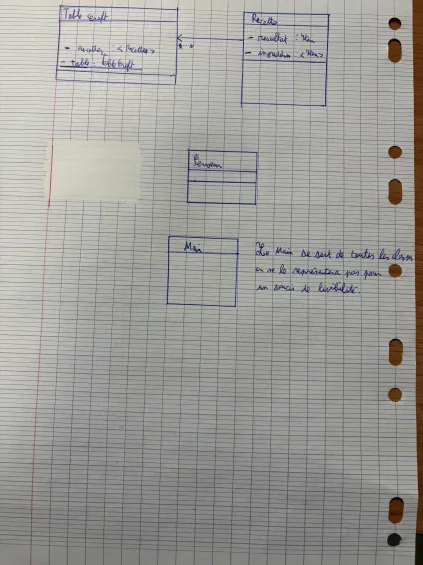 Table craft
- recettes : <Recettes>
- table :
Recette
- resultat : Item
- ingredien : <Item>
Main
Le Main se sert de toutes les classes
on ne le représentera pas pour
un soucis de lisibilité.